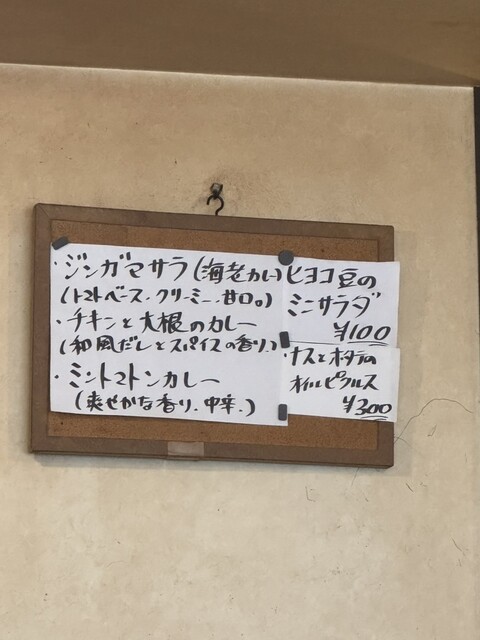 ・ジンガマサラ(海老カレー)
(トマトベース、クリーミー、甘口。)
・チキンと大根のカレー
(和風だしとスパイスの香り、)
・ミントマトンカレー
(爽やかな香り、中辛、)
ヒヨコ豆の
ミニサラダ
¥100
・ナスとホタテの
オイルピクルス
¥300